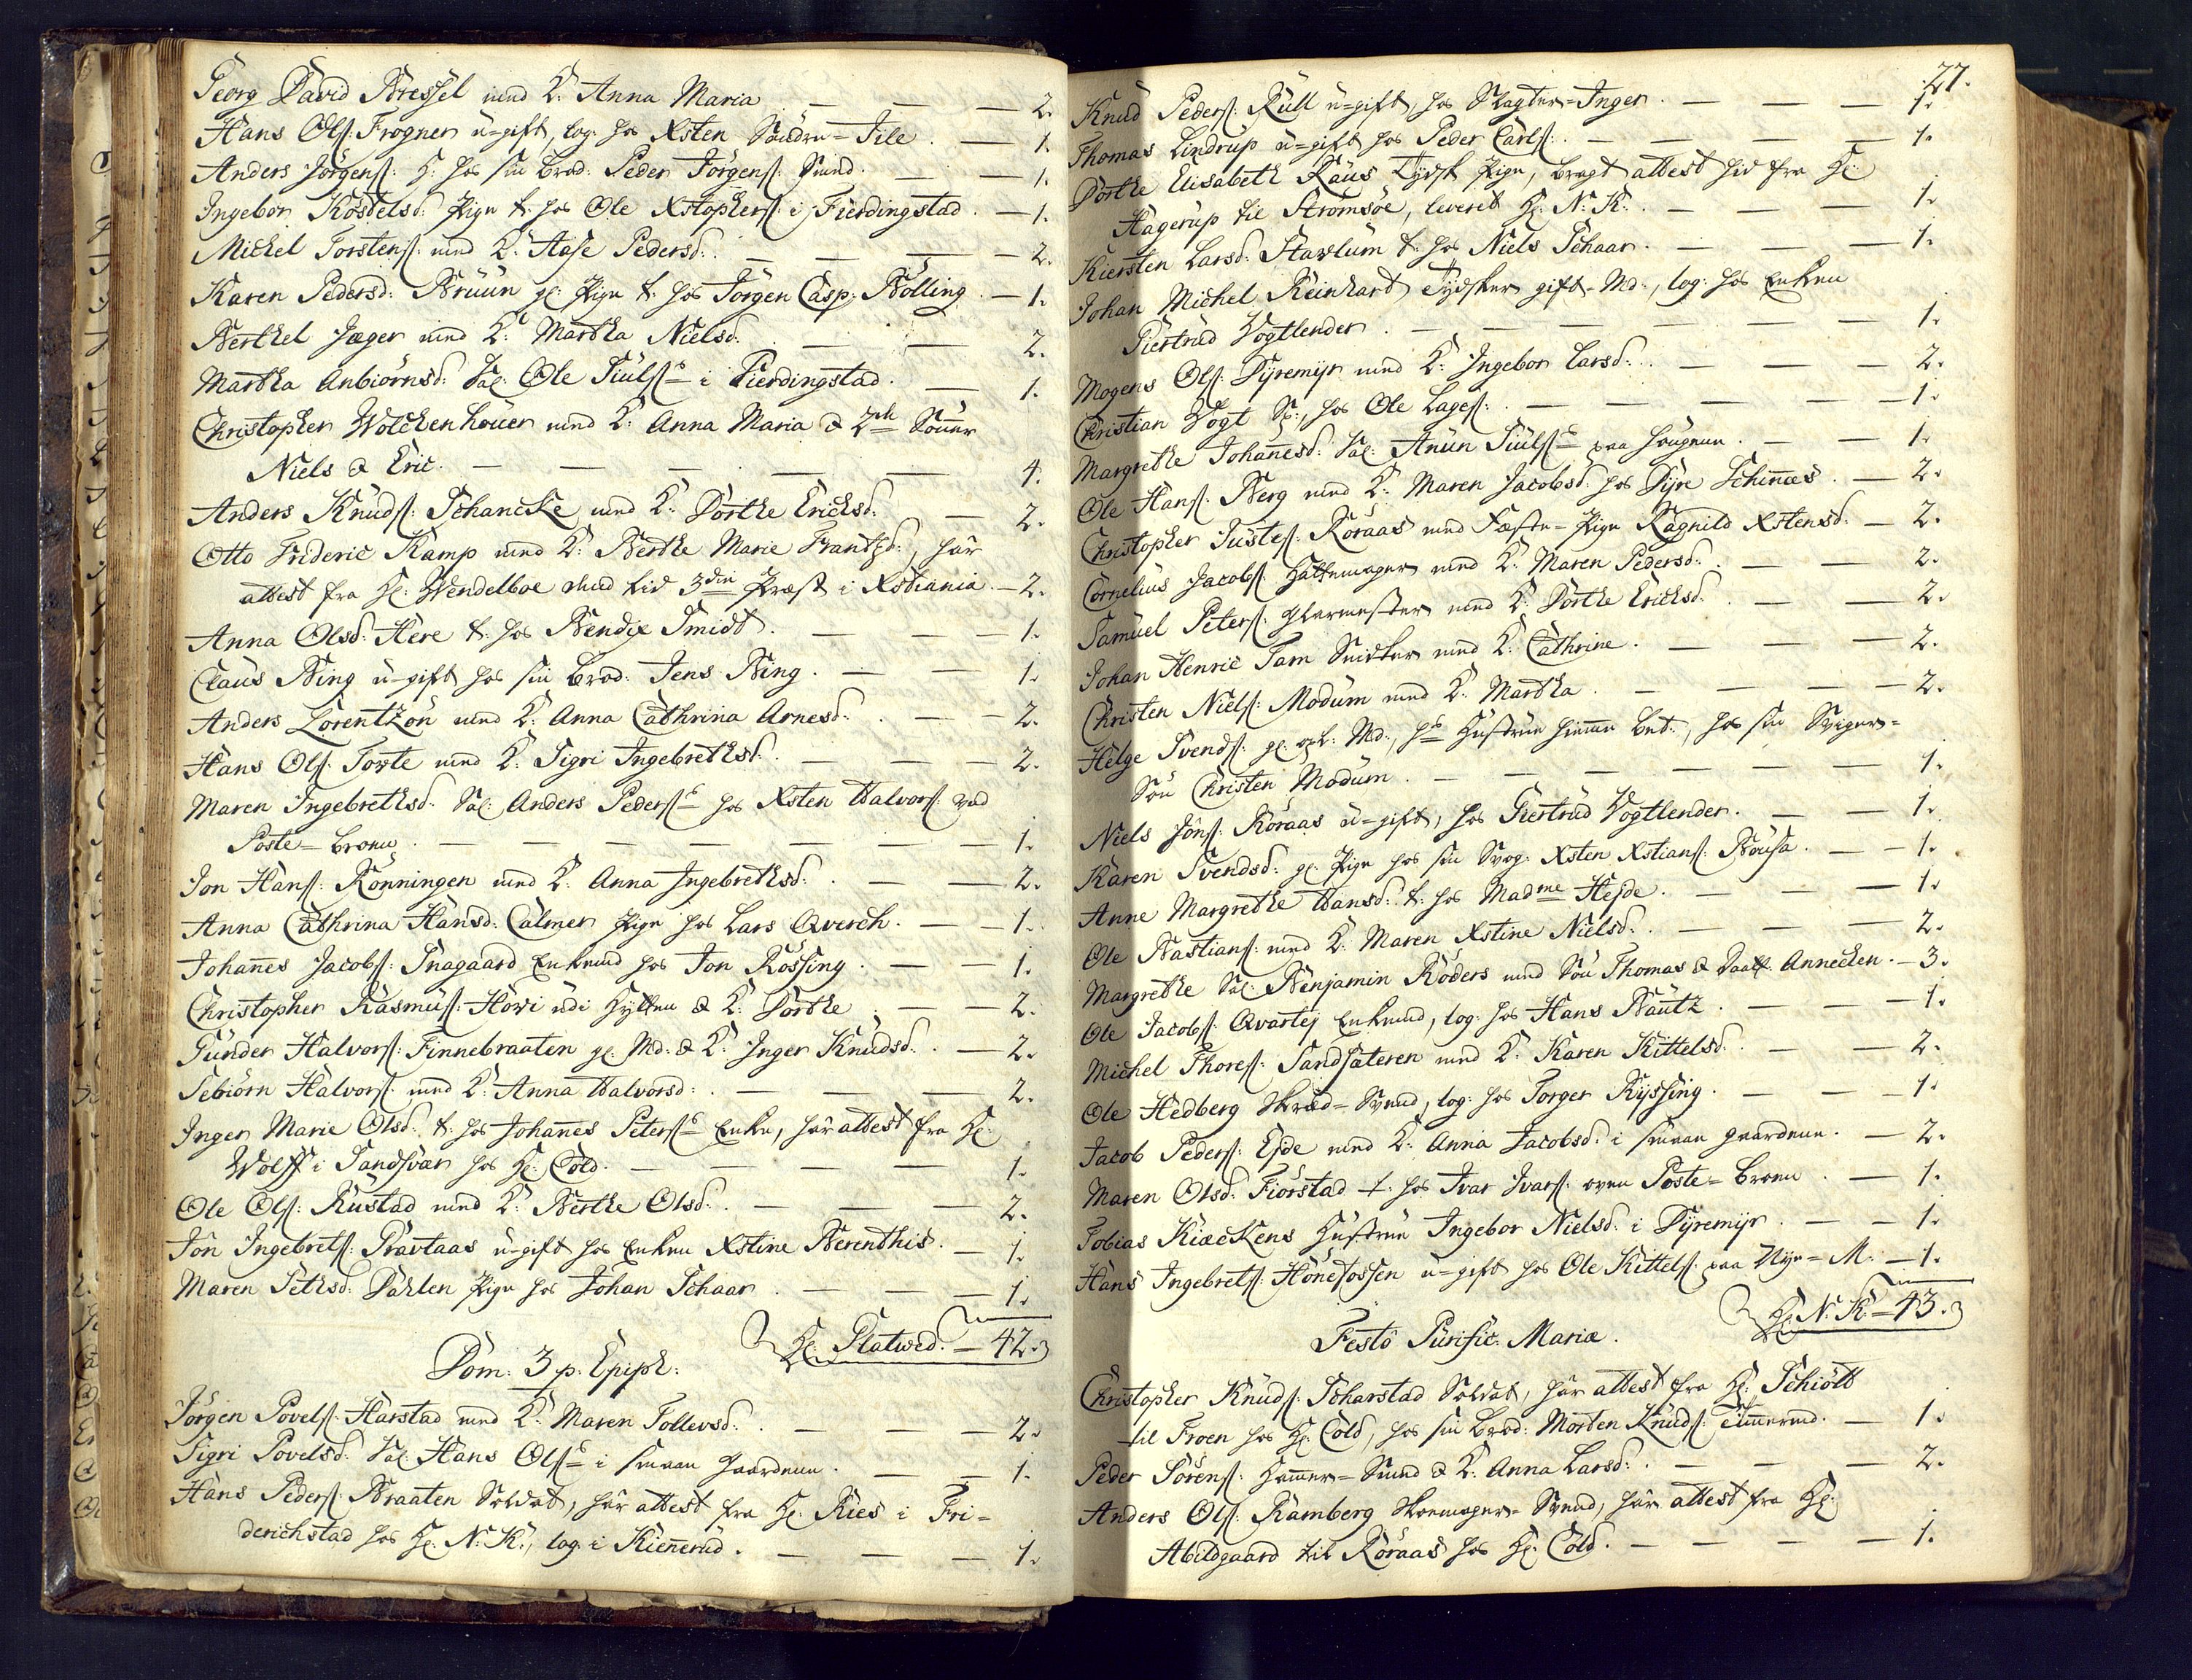 Georg David Bressel med K: Anna Maria . — — — 2.
Hans Ols: Frogner u=gift, log: hos Xsten Søndre=Jile . — 1.
Anders Jörgens: H: hos sin brod: Peder Jörgens: Smed. — — 1.
Ingebor Kösdelsd: Pige t: hos Ole Xstophers: i Fierdingstad . — 1.
Michel Torstens: med K: Aase Pedersd: . — — — 2.
Karen Pedersd: Brüün gl: Pige t: hos Jörgen Casp: Bölling . — 1.
Berthel Jæger med K: Martha Nielsd: . — — 2.
Martha Anbiörnsd: Sal: Ole Siüls: i Fierdingstad . — 1.
Christopher Wolckenhöuer med K: Anna Maria & 2de Sönner
Niels & Eric . — — — — — 4.
Anders Knuds: Schancke med K: Dorthe Ericksd: — 2.
Otto Frideric Kamp med K: Berthe Marie Frantzd:, har
attest fra Hr: Wendelboe ved 3die Præst i Xstiania . — 2.
Anna Olsd: Here t: hos Bendix Smidt . — — — 1.
Claus Bing u=gift hos sin brod: Jens Bing . — — 1.
Anders Lorentzön med K: Anna Cathrina Arnesd: . — — 2.
Hans Ols: Torte med K: Sigri Ingebrethsd: . — — — 2.
Maren Ingebrethsd: Sal: Anders Peders: hos Xsten Halvors: ved
Poste=Broen . — — — — — — — 1.
Jon Hans: Rönningen med K: Anna Ingebrethsd: . — — 2.
Anna Cathrina Hansd: Calmer Pige hos Lars Qverch . — — 1.
Johannes Jacobs: Snagaard Enkemd hos Jon Rössing . — — 1.
Christopher Rasmus: Howi udi Hytten & K: Dorthe . — — 2.
Gunder Halvors: Finnebraaten gl: Md: & K: Inger Knudsd: . — 2.
Sebiörn Halvors: med K: Anna Halvorsd: . — — — 2.
Inger Marie Olsd: t: hos Johannes Peters: Enke, har attest fra Hr:
Wolff i Sandsvær hos Hr: Cold . — — — — 1.
Ole Ols: Rustad med K: Berthe Olsd: . — — — 2.
Jon Ingebrets: Præstaas u=gift hos Enken Xstine Berenthis . — 1.
Maren Sethsd: Dahlen Pige hos Johan Schaar . — — — 1.
Hr: Platwed . — 42.
Dom: 3 p: Epiph:
Jörgen Povels: Harstad med K: Maren Tollevsd: . — — — 2.
Sigri Povelsd: Sal: Hans Ols: i smaae Gaardene . — — 1.
Hans Peders: Braaten Soldat, har attest fra Hr: Ries i Fri=
derichstad hos Hr: N: K:, log: i Kiennerud . — — — 1.
77.
Knud Peders: Rüll u=gift, hos Slagter=Inger . — — — 1.
Thomas Lindrup u=gift hos Peder Carls: . — — — — 1.
Dorthe Elisabeth Raus Tydsk Pige, bragt attest hid fra Hr:
Hagerup til Strömsöe, leveret Hr: N: K: . — — — 1.
Kiersten Larsd: Stavlum t: hos Niels Schaar . — — — 1.
Johan Michel Reinhard Tydsker gift=Md:, log: hos Enken
Giertrud Vogtlender . — — — — — — 1.
Mogens Ols: Dyremyr med K: Ingebor Larsd: . — — — 2.
Christian Vogt Sk:, hos Ole Lages: . — — — — 1.
Margrethe Johannesd: Sal: Anun Siuls: paa Haugene . — — 1.
Ole Hans: Berg med K: Maren Jacobsd: hos Dyre Schinnes . — 2.
Christopher Justes: Röraas med Fæste=Pige Ragnild Xstensd: — 2.
Cornelius Jacobs: Hattemager med K: Maren Pedersd: . — — 2.
Samuel Peters: Glarmester med K: Dorthe Erichsd: . — — 2.
Johan Henric Tarn Snidker med K: Cathrine . — — — 2.
Christen Niels: Modum med K: Martha . — — — — 2.
Helge Svends: gl: gift: Md:, hs Hustrue hiemme bet:, hos sin Sviger=
Sön Christen Modum . — — — — — — 1.
Niels Jöns: Röraas u=gift, hos Giertrud Vogtlender . — — 1.
Karen Svendsd: gl: Pige hos sin Svog: Xsten Xstians: Bousa . — — 1.
Anne Margrethe Hansd: t: hos Madme Hejde . — — — 1.
Ole Bastians: med K: Maren Xstine Nielsd: . — — — 2.
Margrethe Sal: Benjamin Röders med Sön Thomas & Daatt: Annechen . — 3.
Ole Jacobs: Qvartej Enkemd, log: hos Hans Bautz . — — — 1.
Michel Thores: Sandsateren med K: Karen Kittelsd: . — — 2.
Ole Hedberg Skræd=Svend, log: hos Torger Ryssing . — — — 1.
Jacob Peders: Ejde med K: Anna Jacobsd: i smaae Gaardene . — 2.
Maren Olsd: Fiörstad t: hos Ivar Ivars: oven Poste=Broen . — 1.
Tobias Kiæckens Hustrue Ingebor Nielsd: i Dyremyr . — — 1.
Hans Ingebrets: Hönefossen u=gift hos Ole Kittels: paa Nye=M: — 1.
Hr: N: K: — 43.
Festo Purific: Mariæ .
Christopher Knuds: Scharstad Soldat, har attest fra Hr: Schiött
til Froen hos Hr: Cold, hos sin Brod: Morten Knuds: Tömmermd: . — 1.
Peder Sörens: Hammer=Smed & K: Anna Larsd: . — — — 2.
Anders Ols: Ramberg Skoemager=Svend, har attest fra Hr:
Abildgaard til Röraas hos Hr: Cold . — — — — 1.